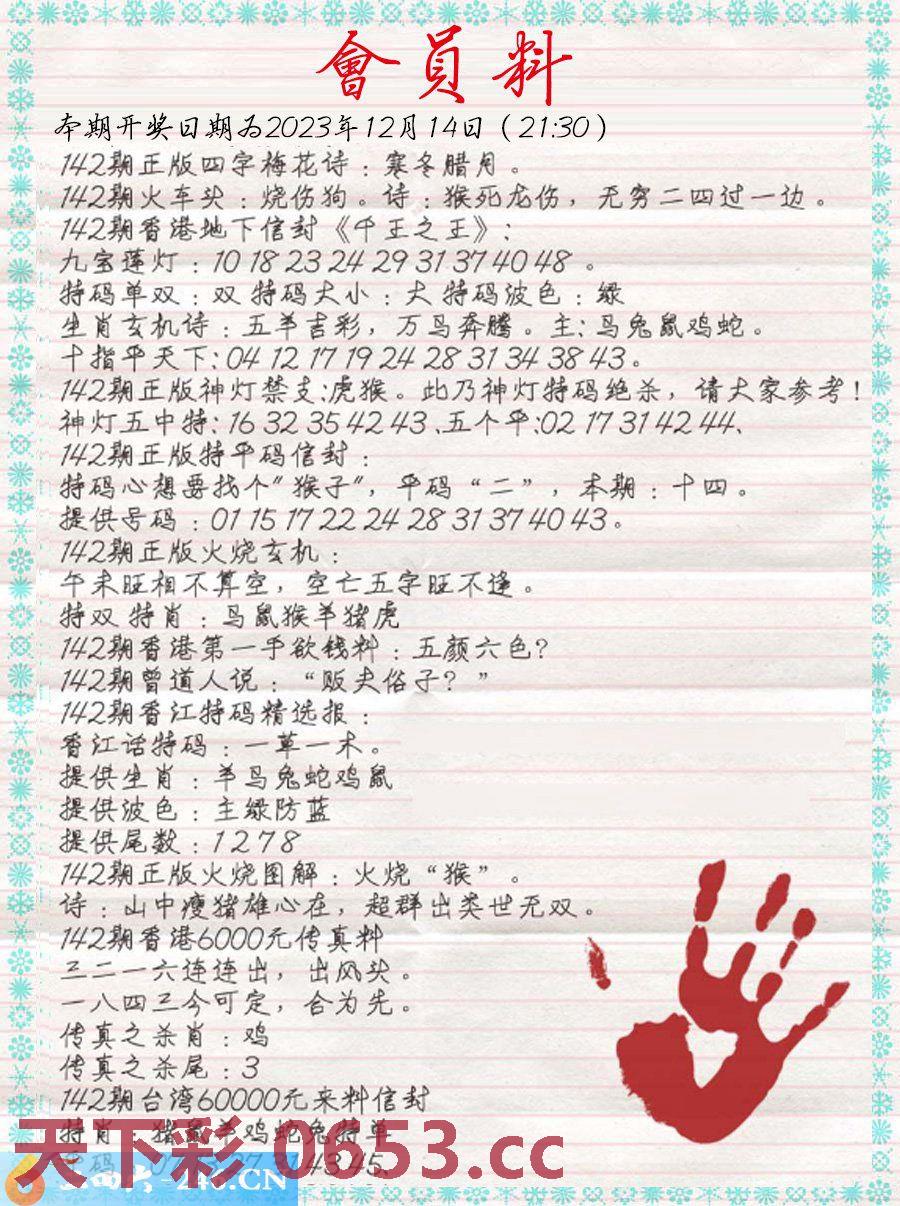 會員料
本期开奖日期为2023年12月14日（21:30）
142期正版四字梅花诗：寒冬腊月。
142期火车头：烧伤狗。诗：猴死龙伤，无穷二四过一边。
142期香港地下信封《千王之王》：
九宝莲灯：10 18 23 24 29 31 37 40 48 。
特码单双：双 特码大小：大 特码波色：绿
生肖玄机诗：五羊吉彩，万马奔腾。主：马兔鼠鸡蛇。
十指平天下：04 12 17 19 24 28 31 34 38 43。
142期正版神灯禁支：虎猴。此乃神灯特码绝杀，请大家参考！
神灯五中特：16 32 35 42 43 、五个平：02 17 31 42 44、
142期正版特平码信封：
特码心想要找个"猴子"，平码“二”，本期：十四。
提供号码：01 15 17 22 24 28 31 37 40 43。
142期正版火烧玄机：
午未旺相不算空，空亡五字旺不逢。
特双 特肖：马鼠猴羊猪虎
142期香港第一手欲钱料：五颜六色？
142期曾道人说：“贩夫俗子？”
142期香江特码精选报：
香江话特码：一草一木。
提供生肖：羊马兔蛇鸡鼠
提供波色：主绿防蓝
提供尾数：1 2 7 8
142期正版火烧图解：火烧“猴”。
诗：山中瘦猪雄心在，超群出类世无双。
142期香港6000元传真料
三二一六连连出，出风头。
一八四三今可定，合为先。
传真之杀肖：鸡
传真之杀尾：3
142期台湾60000元来料信封
特肖：猪鼠羊鸡蛇兔特单
天下彩 0653.cc
43 45、
-246.CN